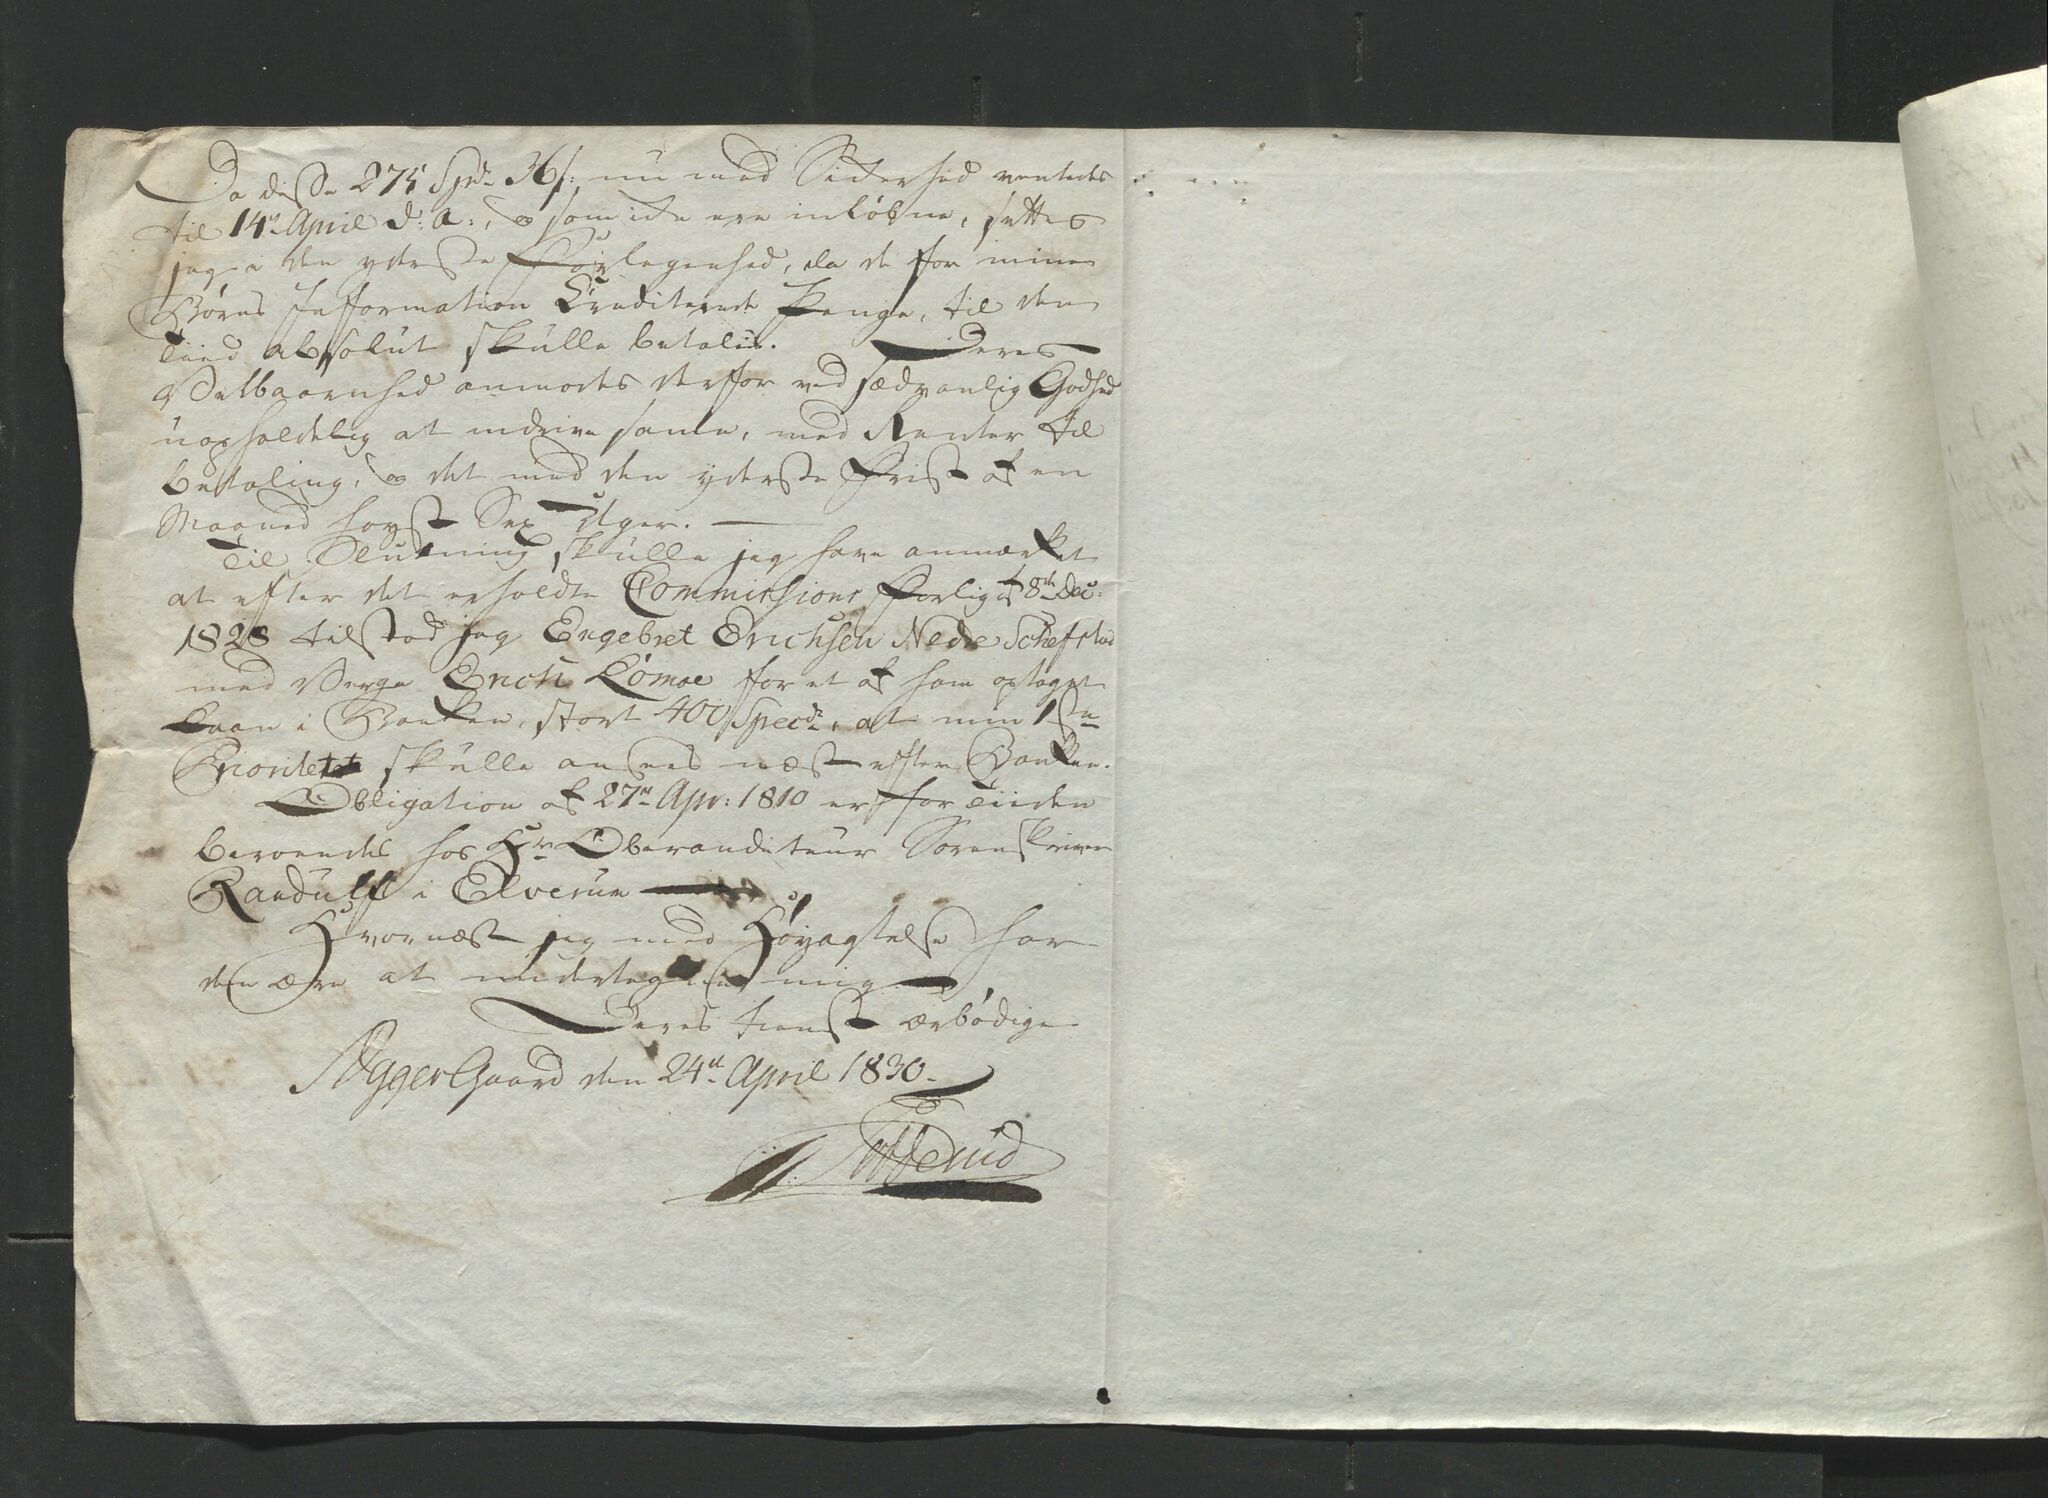 Da disse 275 Spd. 36 s: nu med Sikerhed ventedes
til 14de April d: A:, og som ikke ere inkøbne, sættes
jeg i den yderste Forlegenhed, da de for mine
Børns Information Crediterede Penge, til den
Tiid absolut skulle betales. Deres
Velbaarnhed anmodes derfor ved sædvanlig Godhed
uopholdelig at inddrive samme, med Renter til
betaling, og det med den yderste Frist af en
Maaned høyst Sex Uger. —
Til Slutning skulle jeg have anmærket
at efter det erholdte Commissions Forlig af 8de Dec:
1828 tilstod jeg Engebret Erichsen Nedre Schefstad
med Verge Erich Lømoe for et af ham optaget
Laan i Banken, stort 400 Specd., at min 1ste
Prioritet skulle ansees næst efter Banken.
Obligation af 27de Apr: 1810 er for Tiiden
beroendes hos Hr Oberauditeur Sorenskriver
Randulff i Elverum —
Hvornæst jeg med Høyagtelse har
den ære at undertegne mig
Deres tienst ærbødige
AggerGaard den 24de April 1830.